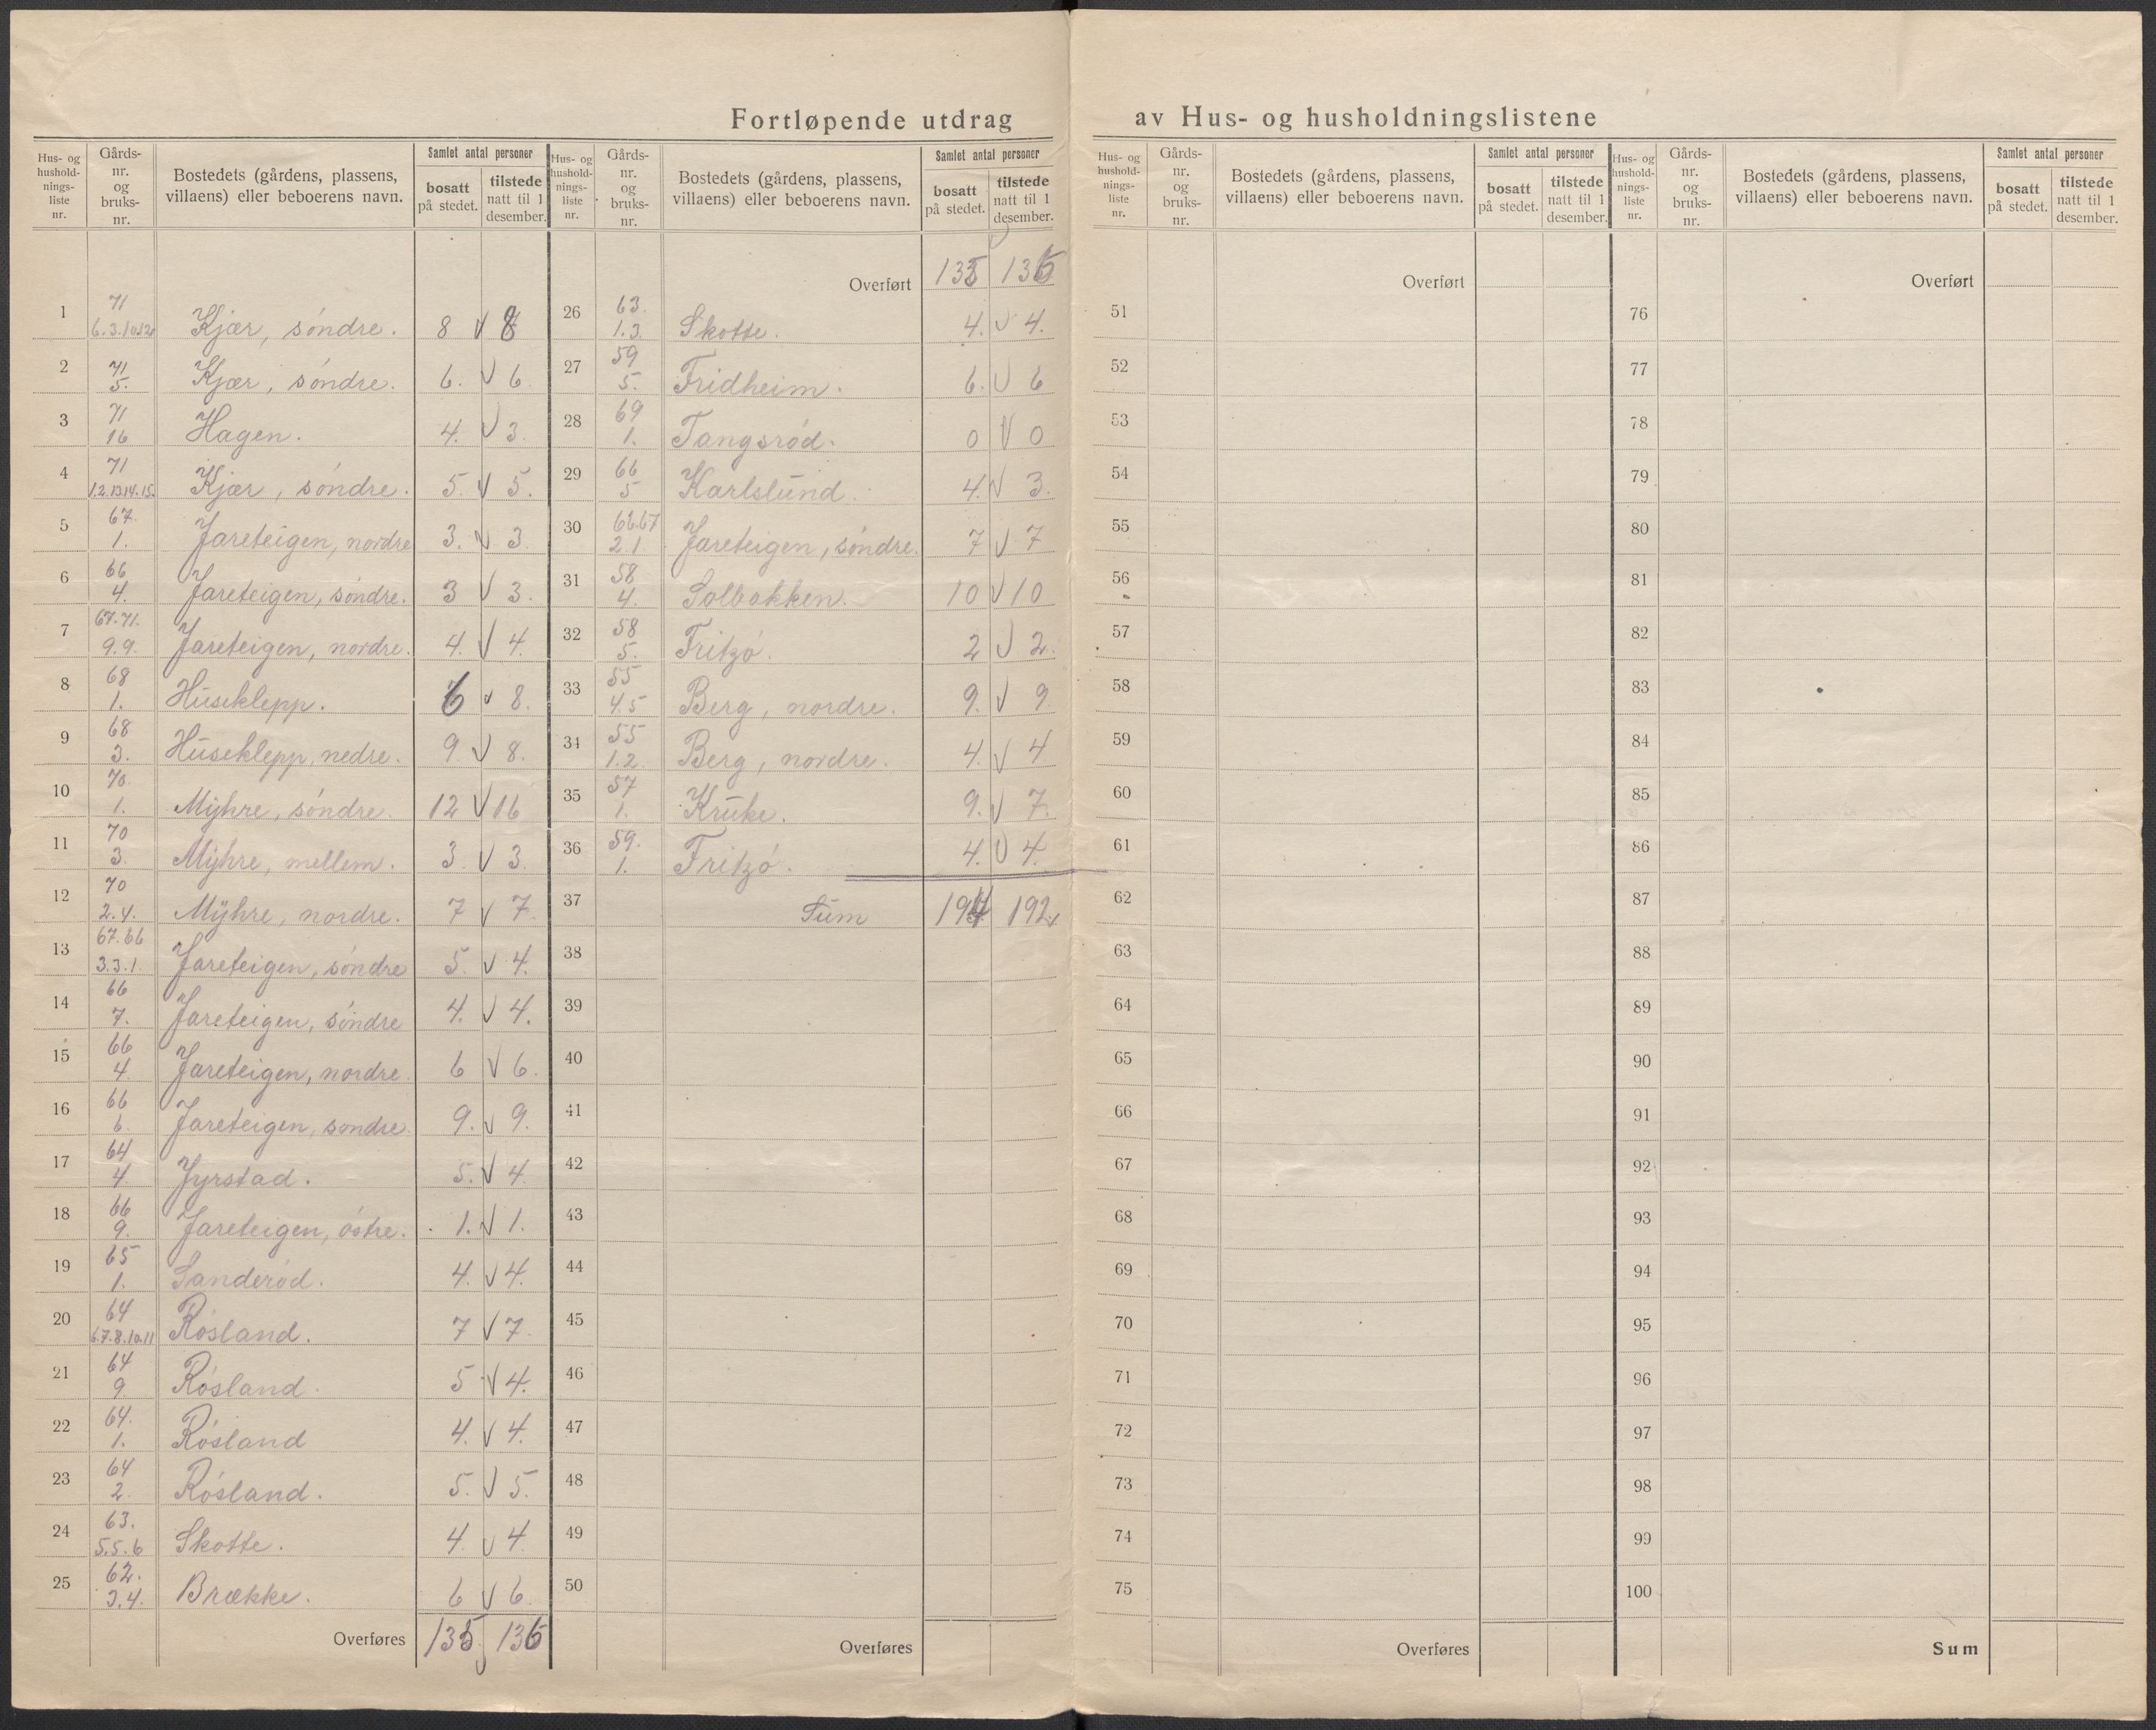 Fortløpende utdrag av Hus- og husholdningslistene
Hus- og hushold-nings-liste nr. Gårds-nr. og bruks-nr. Bostedets (gårdens, plassens, villaens) eller beboerens navn. Samlet antal personer bosatt på stedet. tilstede natt til 1 desember.
1 71 6.3.10.12 Kjær, søndre. 8 8
2 71 5. Kjær, søndre. 6. 6
3 71 16 Hagen. 4. 3
4 71 1.2.13.14.15. Kjær, søndre. 5. 5.
5 67. 1. Jareteigen, nordre 3. 3
6 66 4. Jareteigen, søndre. 3 3.
7 67.71. 9.9. Jareteigen, nordre. 4. 4.
8 68 1. Huseklepp. 8.
9 68 3. Huseklepp, nedre. 9 8.
10 70 1. Myhre, søndre. 12 16
11 70 3. Myhre, mellem. 3. 3
12 70 2.4. Myhre, nordre. 7 7.
13 67.66 3.3.1. Jareteigen, søndre 5. 4.
14 66 7. Jareteigen, søndre 4. 4.
15 66 4. Jareteigen, nordre. 6 6.
16 66 6. Jareteigen, søndre. 9. 9.
17 64 4. Jyrstad. 5. 4.
18 66 9. Jareteigen, østre. 1. 1.
19 65 1. Sanderød. 4. 4.
20 64 6.7.8.10.11 Røsland. 7 7
21 64 9. Røsland. 5 4.
22 64. 1. Røsland 4. 4.
23 64 2. Røsland. 5. 5.
24 63. 5.5.6 Skotte. 4. 4
25 62. 3.4. Brække. 6 6.
Overføres 135 136
Hus- og hushold-nings-liste nr. Gårds-nr. og bruks-nr. Bostedets (gårdens, plassens, villaens) eller beboerens navn. Samlet antal personer bosatt på stedet. tilstede natt til 1 desember.
Overført 135 136
26 63. 1.3. Skotte. 4. 4.
27 59 5. Fridheim. 6. 6
28 69 1. Tangsrød. 0 0
29 66 5 Karlslund. 4. 3.
30 66.67 2.1. Jareteigen, søndre. 7 7
31 58 4. Solbakken. 10 10
32 58 5. Fritzø. 2 2.
33 55 4.5 Berg, nordre. 9. 9
34 55 1.2. Berg, nordre. 4. 4
35 57 1. Kruke. 9. 7.
36 59. 1. Fritzø. 4. 4.
37 Sum 194 192
38
39
40
41
42
43
44
45
46
47
48
49
50
Overføres
Hus- og hushold-nings-liste nr. Gårds-nr. og bruks-nr. Bostedets (gårdens, plassens, villaens) eller beboerens navn. Samlet antal personer bosatt på stedet. tilstede natt til 1 desember.
Overført
51
52
53
54
55
56
57
58
59
60
61
62
63
64
65
66
67
68
69
70
71
72
73
74
75
Overføres
Hus- og hushold-nings-liste nr. Gårds-nr. og bruks-nr. Bostedets (gårdens, plassens, villaens) eller beboerens navn. Samlet antal personer bosatt på stedet. tilstede natt til 1 desember.
Overført
76
77
78
79
80
81
82
83
84
85
86
87
88
89
90
91
92
93
94
95
96
97
98
99
100
Sum